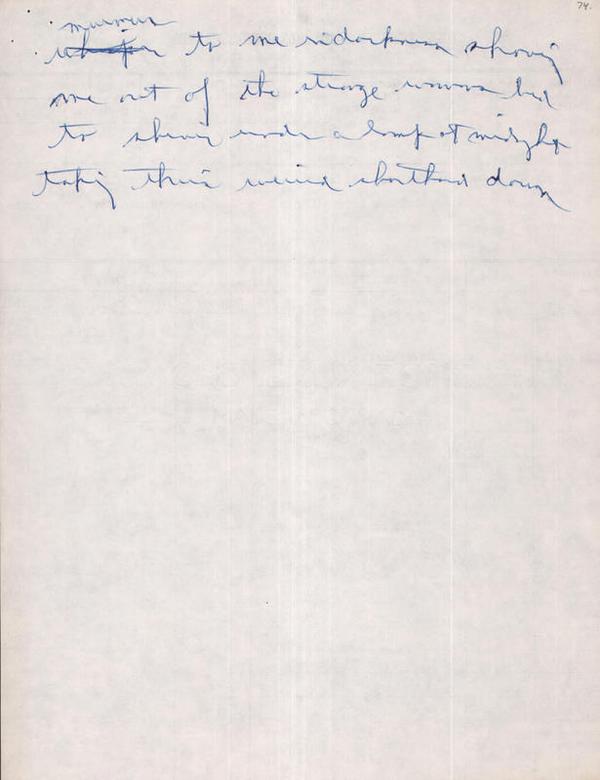 74.
murmur
whisper to me in darkness shoving
me out of the strange womans bed
to shiver under a lamp at midnight
taking their weird shorthand down